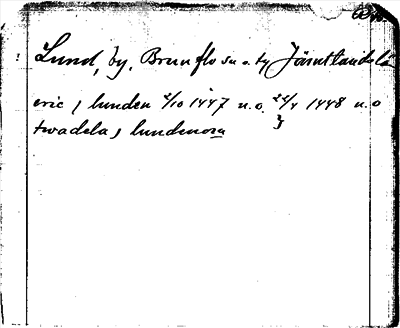 Lund, by, Brunflo sn o. ty Jämtlands lä
eric j lunden 2/10 1447 n.o. 24/4 1448 n.o
twadela j lundenom